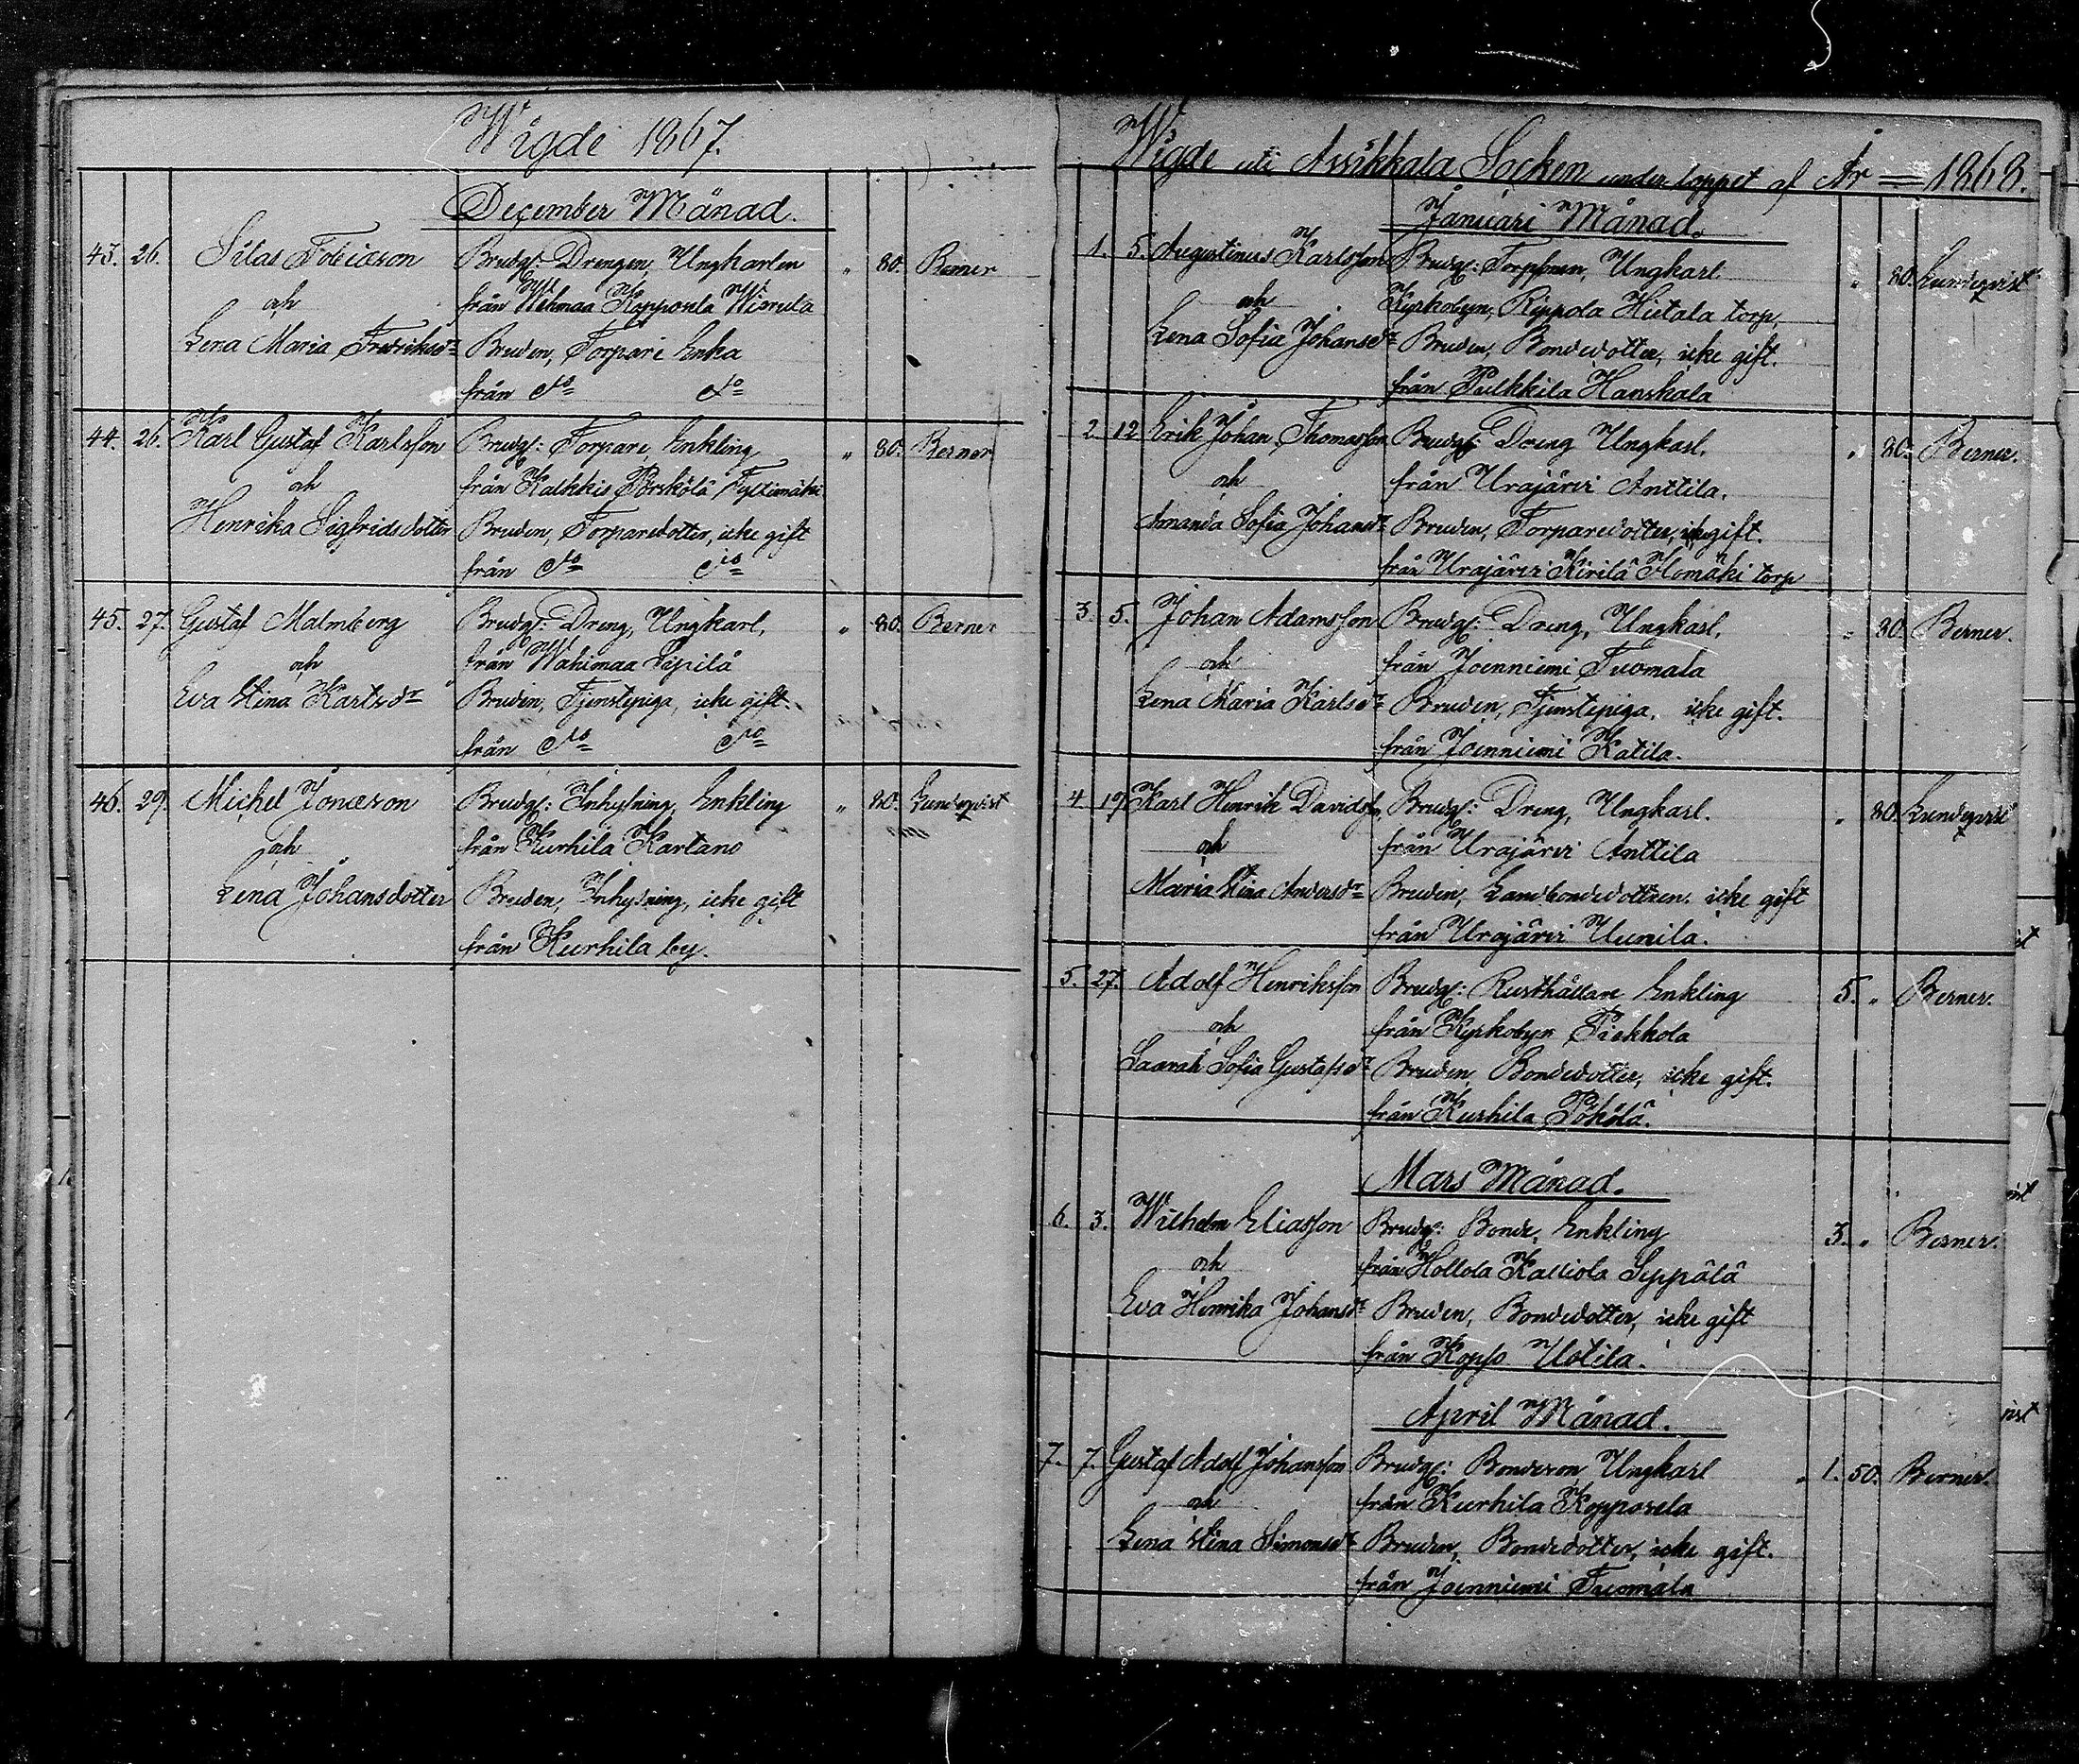 Wigde 1867.
December Månad.
43. 26. Silas Tobiasson Brudg: Drengen, Ungkarlen " 80. Berner
och från Wehmaa Kopposela Wiorula
Lena Maria Fredriksdr Bruden, Torpare Enka
från do do
44. 26. Karl Gustaf Karlsson Brudg: Torpare, Enkling " 80. Berner
och från Kalkkis Pörskölä Tyllimäki
Henrika Sigfridsdotter Bruden, Torparedotter, icke gift
från do do
45. 27. Gustaf Malmberg Brudg: Dreng, Ungkarl, " 80. Berner
och från Wähimaa Sipilä
Eva Stina Karlsdr Bruden, Tjenstepiga, icke gift.
från do do
46. 29. Michel Jonasson Brudg: Inhysning, Enkling " 80. Lundeqvist
och från Kurhila Kartano
Lena Johansdotter Bruden, Inhysning, icke gift
från Kurhila by.
Wigde uti Assikkala Socken under loppet af År = 1868.
Januari Månad.
1. 5. Augustinus Karlsson Brudg: Torpson, Ungkarl. " 80. Lundeqvist
och Kyrkobyn, Rippola Hietala torp,
Lena Sofia Johansdr Bruden, Bondedotter, icke gift.
från Pulkkila Hanskala
2. 12 Erik Johan Thomasson Brudg: Dreng Ungkarl. " 80. Berner.
och från Urajärvi Anttila.
Amanda Sofia Johansdr Bruden, Torparedotter, icke gift.
från Urajärvi Kirilä Homäki torp
3. 5. Johan Adamsson Brudg: Dreng, Ungkarl. " 80. Berner.
och från Joenniemi Tuomala
Lena Maria Karlsdr Bruden, Tjenstepiga, icke gift.
från Joenniemi Katila.
4. 19 Karl Henrik Davidss. Brudg: Dreng, Ungkarl. " 80. Lundeqvist
och från Urajärvi Anttila
Maria Stina Andersdr Bruden, Landbondedottren. icke gift
från Urajärvi Uunila.
5. 27. Adolf Henriksson Brudg: Rusthållare Enkling 5. " Berner.
och från Kyrkobyn Piekkola
Saarah Sofia Gustafsdr Bruden, Bondedotter, icke gift.
från Kurhila Pökölä.
Mars Månad.
6. 3. Wilhelm Eliasson Brudg: Bonde, Enkling 3. " Berner.
och från Hollola Kalliola Seppälä
Eva Henrika Johansdr Bruden, Bondedotter, icke gift
från Kopso Uotila.
April Månad.
7. 7. Gustaf Adolf Johansson Brudg: Bondeson, Ungkarl 1. 50. Berner.
och från Kurhila Kopposela
Lena Stina Simonsdr Bruden, Bondedotter, icke gift.
från Joenniemi Tuomala